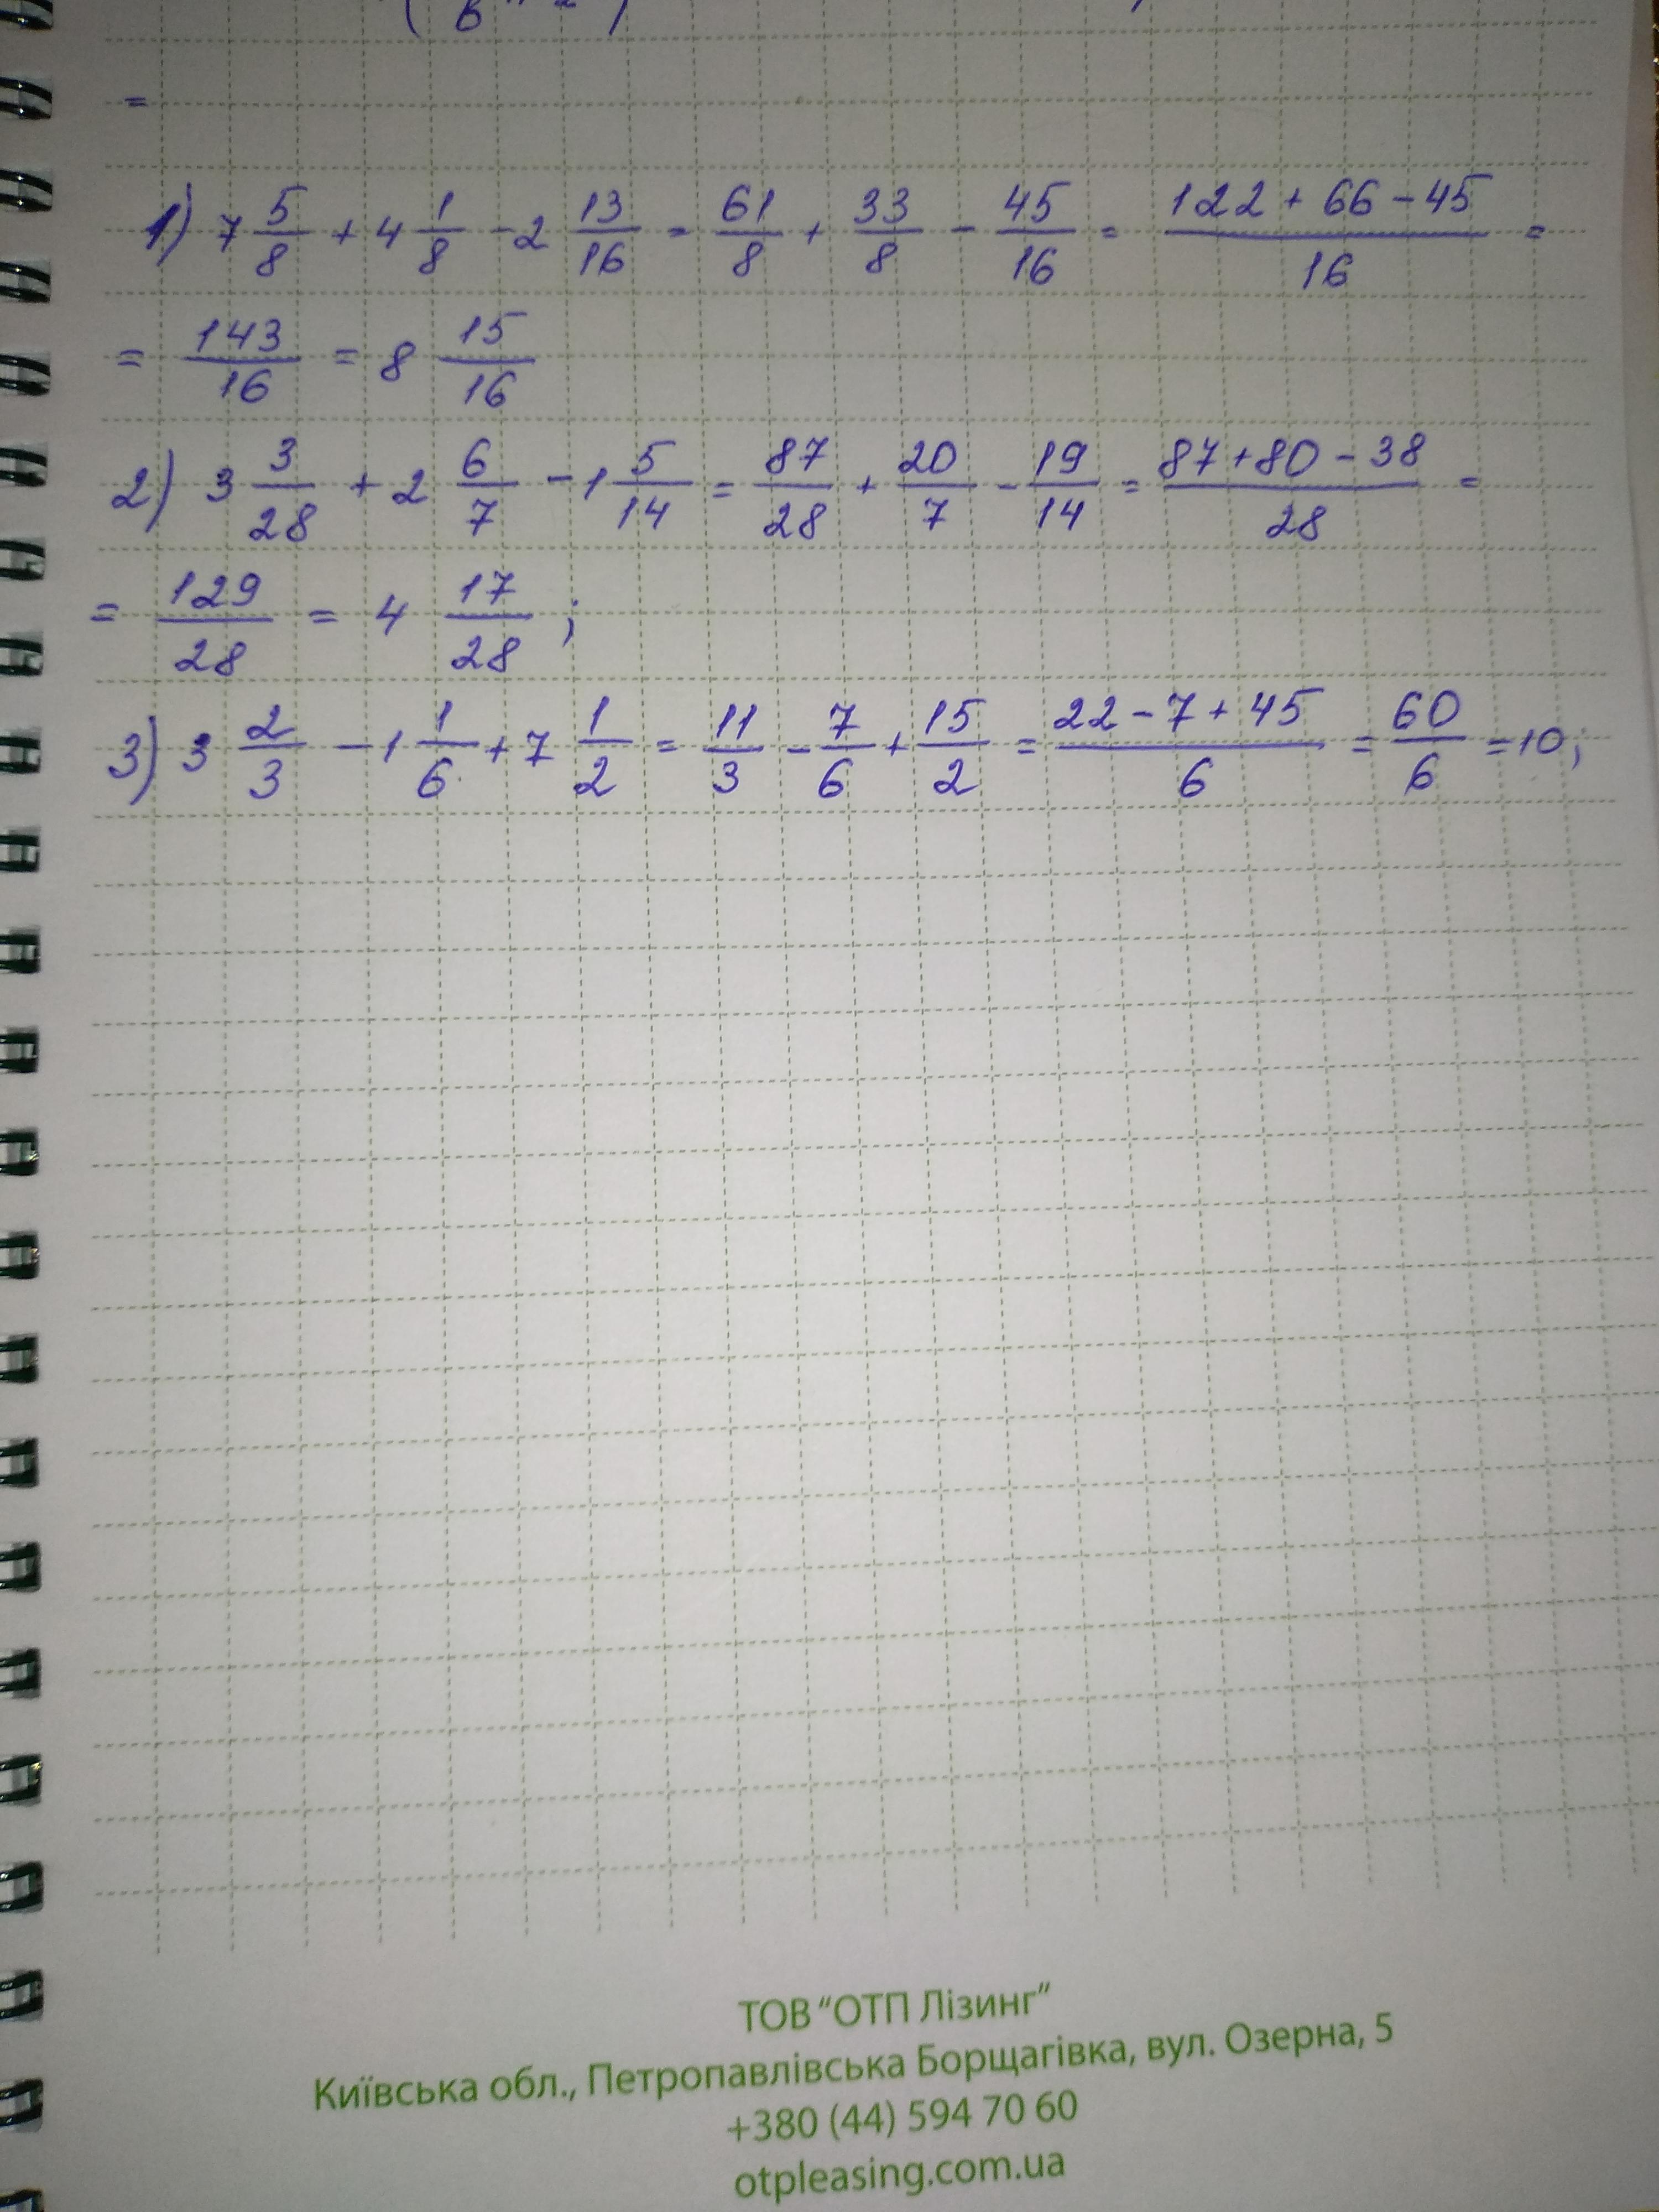 =
1) 7 5/8 + 4 1/8 - 2 13/16 = 61/8 + 33/8 - 45/16 = (122 + 66 - 45)/16 =
= 143/16 = 8 15/16
2) 3 3/28 + 2 6/7 - 1 5/14 = 87/28 + 20/7 - 19/14 = (87 + 80 - 38)/28 =
= 129/28 = 4 17/28 ;
3) 3 2/3 - 1 1/6 + 7 1/2 = 11/3 - 7/6 + 15/2 = (22 - 7 + 45)/6 = 60/6 = 10;
ТОВ "ОТП Лізинг"
Київська обл., Петропавлівська Борщагівка, вул. Озерна, 5
+380 (44) 594 70 60
otpleasing.com.ua